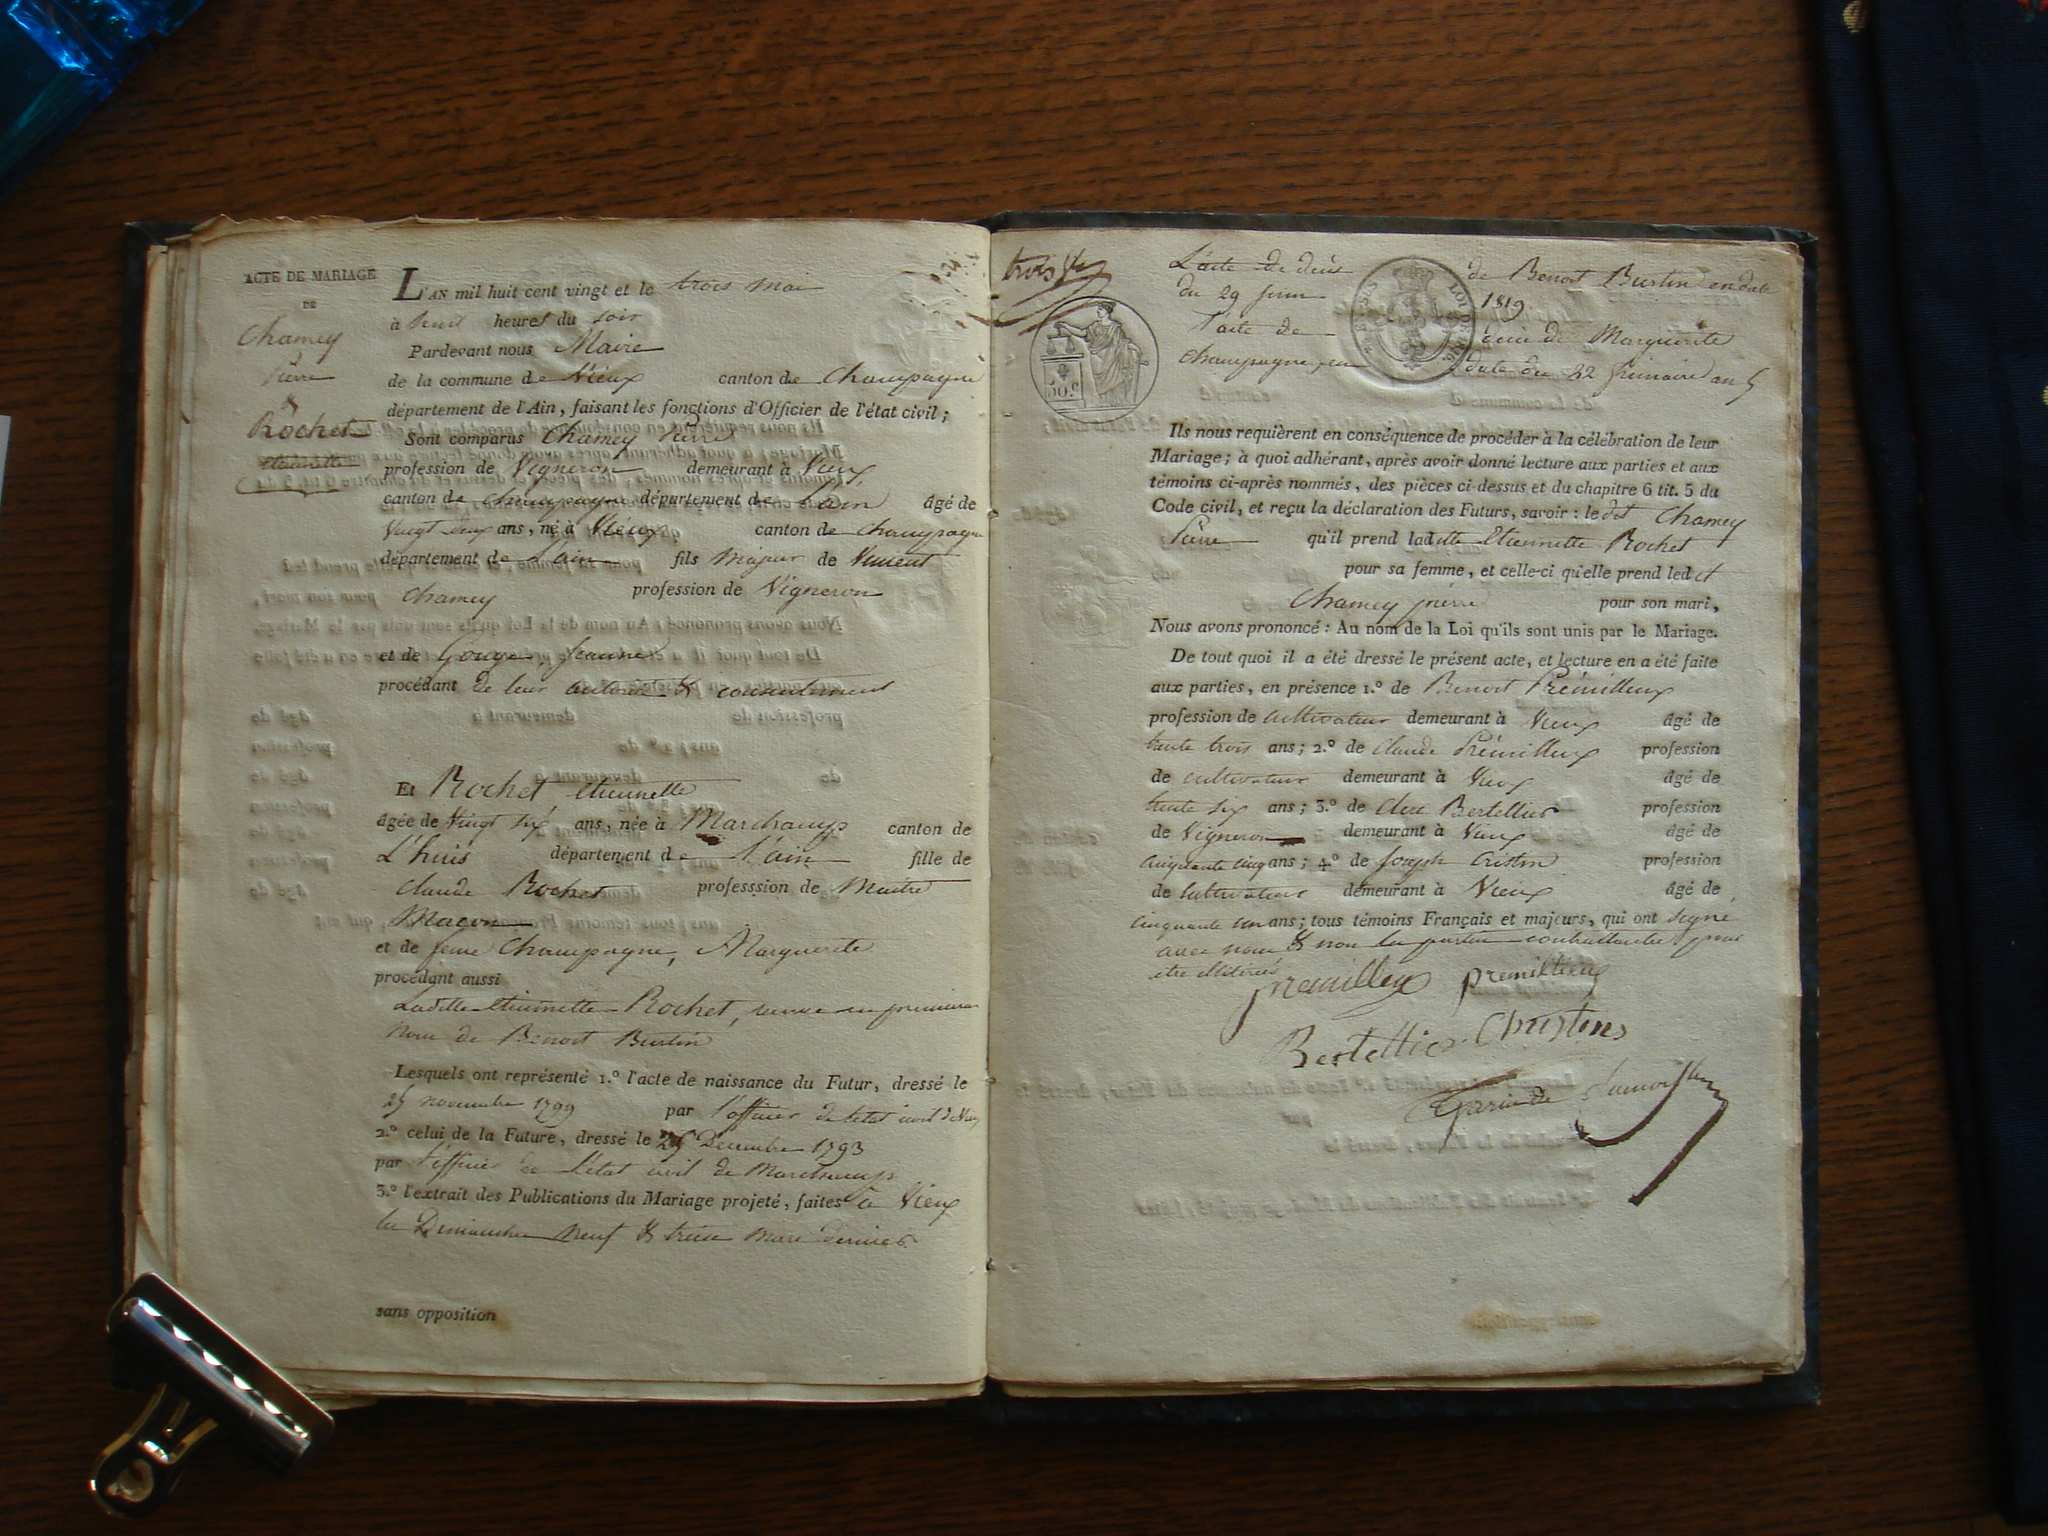 ACTE DE MARIAGE
DE
Chamey
Pierre
&
Rochet
etiennette
L'AN mil huit cent vingt et le trois mai
à huit heures du soir
Pardevant nous Maire
de la commune de Vieux canton de Champagne
département de l'Ain, faisant les fonctions d'Officier de l'état civil;
Sont comparus Chamey Pierre
profession de Vigneron demeurant à Vieux
canton de champagne département de L'ain âgé de
Vingt deux ans, né à Vieux canton de champagne
département de L'ain fils majeur de Vincent
Chamey profession de Vigneron
et de Gouge, Jeanne
procédant de leur autorité & consentement
Et Rochet etiennette
âgée de Vingt six ans, née à Marchamp canton de
L'huis département de L'ain fille de
Claude Rochet professsion de Maitre
Macon
et de feue Champagne, Marguerite
procédant aussi
Ladite etiennette Rochet, veuve en premiere
Noce de Benoit Burtin
Lesquels ont représenté 1.º l'acte de naissance du Futur, dressé le
25 novembre 1799 par l'officier de l'etat civil de Vieux
2.º celui de la Future, dressé le 25 Decembre 1793
par l'officier de L'état civil de Marchamp
3.º l'extrait des Publications du Mariage projeté, faites à Vieux
les Dimanches neuf & treize mars dernier
sans opposition
trois
L'acte de décès de Benoit Burtin en date
du 29 juin 1819
l'acte de décès de Marguerite
champagne, en date du 22 frimaire an 5
50.c
Ils nous requièrent en conséquence de procéder à la célébration de leur
Mariage; à quoi adhérant, après avoir donné lecture aux parties et aux
témoins ci-après nommés, des pièces ci-dessus et du chapitre 6 tit. 5 du
Code civil, et reçu la déclaration des Futurs, savoir: le dit Chamey
Pierre qu'il prend ladite etiennette Rochet
pour sa femme, et celle-ci qu'elle prend ledit
Chamey pierre pour son mari,
Nous avons prononcé: Au nom de la Loi qu'ils sont unis par le Mariage.
De tout quoi il a été dressé le présent acte, et lecture en a été faite
aux parties, en présence 1.º de Benoit Prémillieux
profession de cultivateur demeurant à Vieux âgé de
trente trois ans; 2.º de claude Prémillieux profession
de cultivateur demeurant à Vieux âgé de
trente six ans; 3.º de Bertellier profession
de Vigneron demeurant à Vieux âgé de
cinquante cinq ans; 4.º de Joseph Cristin profession
de cultivateur demeurant à Vieux âgé de
cinquante un ans; tous témoins Français et majeurs, qui ont signé
avec nous & non les parties contractantes pour
etre illiterés
premillieux premillieux
Bertellier Christins